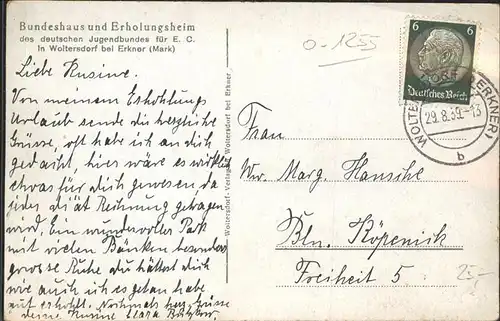 Bundeshaus und Erholungsheim
des deutschen Jugendbundes für E. C.
in Woltersdorf bei Erkner (Mark)
Liebe Kusine.
Von meinem Erhohlungs
Urlaub sende dir herzliche
Grüsse, oft habe ich an dich
gedacht, hier wäre es wirklich
etwas für dich gewesen da
jeder diät Rechnung getragen
wird. Ein wundervoller Park
mit vielen Bänken besonders
grosse Ruhe du hättest dich
wie auch ich es getan habe
gut erhohlt. Nochmals herz. Grüsse
deine Kusine Clara
Woltersdorf-Verlag, Woltersdorf bei Erkner
0-1255
6 6
Deutsches Reich
WOLTERSDORF
b
29.8.39.-13
Frau
Ww. Marg. Hansche
Bln. Köpenick
Freiheit 5.
25,-